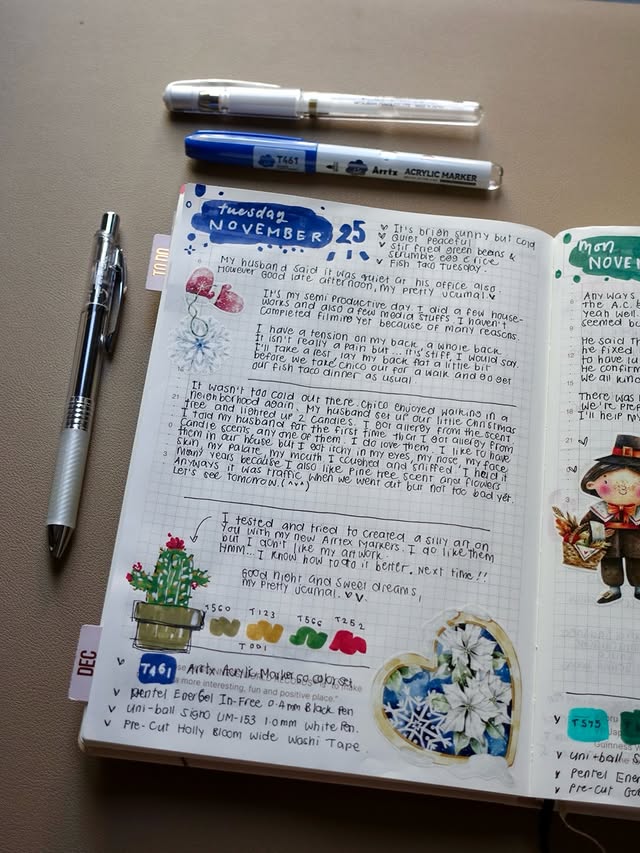 T461
Arrtx ACRYLIC MARKER
tuesday
NOVEMBER 25
It's brigh sunny but cold
Quiet peaceful
Stir fried green beans &
scrumble egg & rice
Fish Taco Tuesday.
TO DO
My husband said it was quiet at his office also.
However good late afternoon, my pretty journal.
It's my semi productive day. I did a few house-
works and also a few media stuffs. I haven't
completed filming yet because of many reasons.
I have a tension on my back, a whole back.
It isn't really a pain but... it's stiff, I would say.
I'll take a rest, lay my back flat a little bit
before we take Chico our for a walk and go get
our fish taco dinner as usual.
It wasn't too cold out there. Chico enjoyed walking in a
neighborhood again. My husband set up our little Christmas
tree and lighred up 2 candles. I got allergy from the scent.
I told my husband for the first time that I got allergy from
candle scents, any one of them. I do love them. I like to have
them in our house but I got itchy in my eyes, my nose, my face
skin, my palate, my mouth I coughed and sniffed. I held it
many years because I also like pine tree scent and flowers.
Anyways it was traffic when we went out but not too bad yet.
Let's see tomorrow. (^v^)
I tested and tried to created a silly art on
you with my new Arrtex Markers. I do like them
but I don't like my artwork.
HMM... I know how to do it better. Next time!!
Good night and sweet dreams,
my pretty journal.
T560 T123 T566 T252
T001
DEC
T461 Arrtx Acrylic Marker 60 color set
a more interesting, fun and positive place."
Pentel EnerGel In-Free 0.4mm Black Pen
Uni-ball Signo UM-153 1.0mm White Pen.
Pre-Cut Holly Bloom Wide Washi Tape
mon
NOVE
Any ways
the A.C. b
yeah well.
seemed b
He said th
he fixed
to have lu
He confirm
we all kin
There was
We're pre
I'll help m
T575
Uni-ball S
Pentel Ener
Pre-Cut